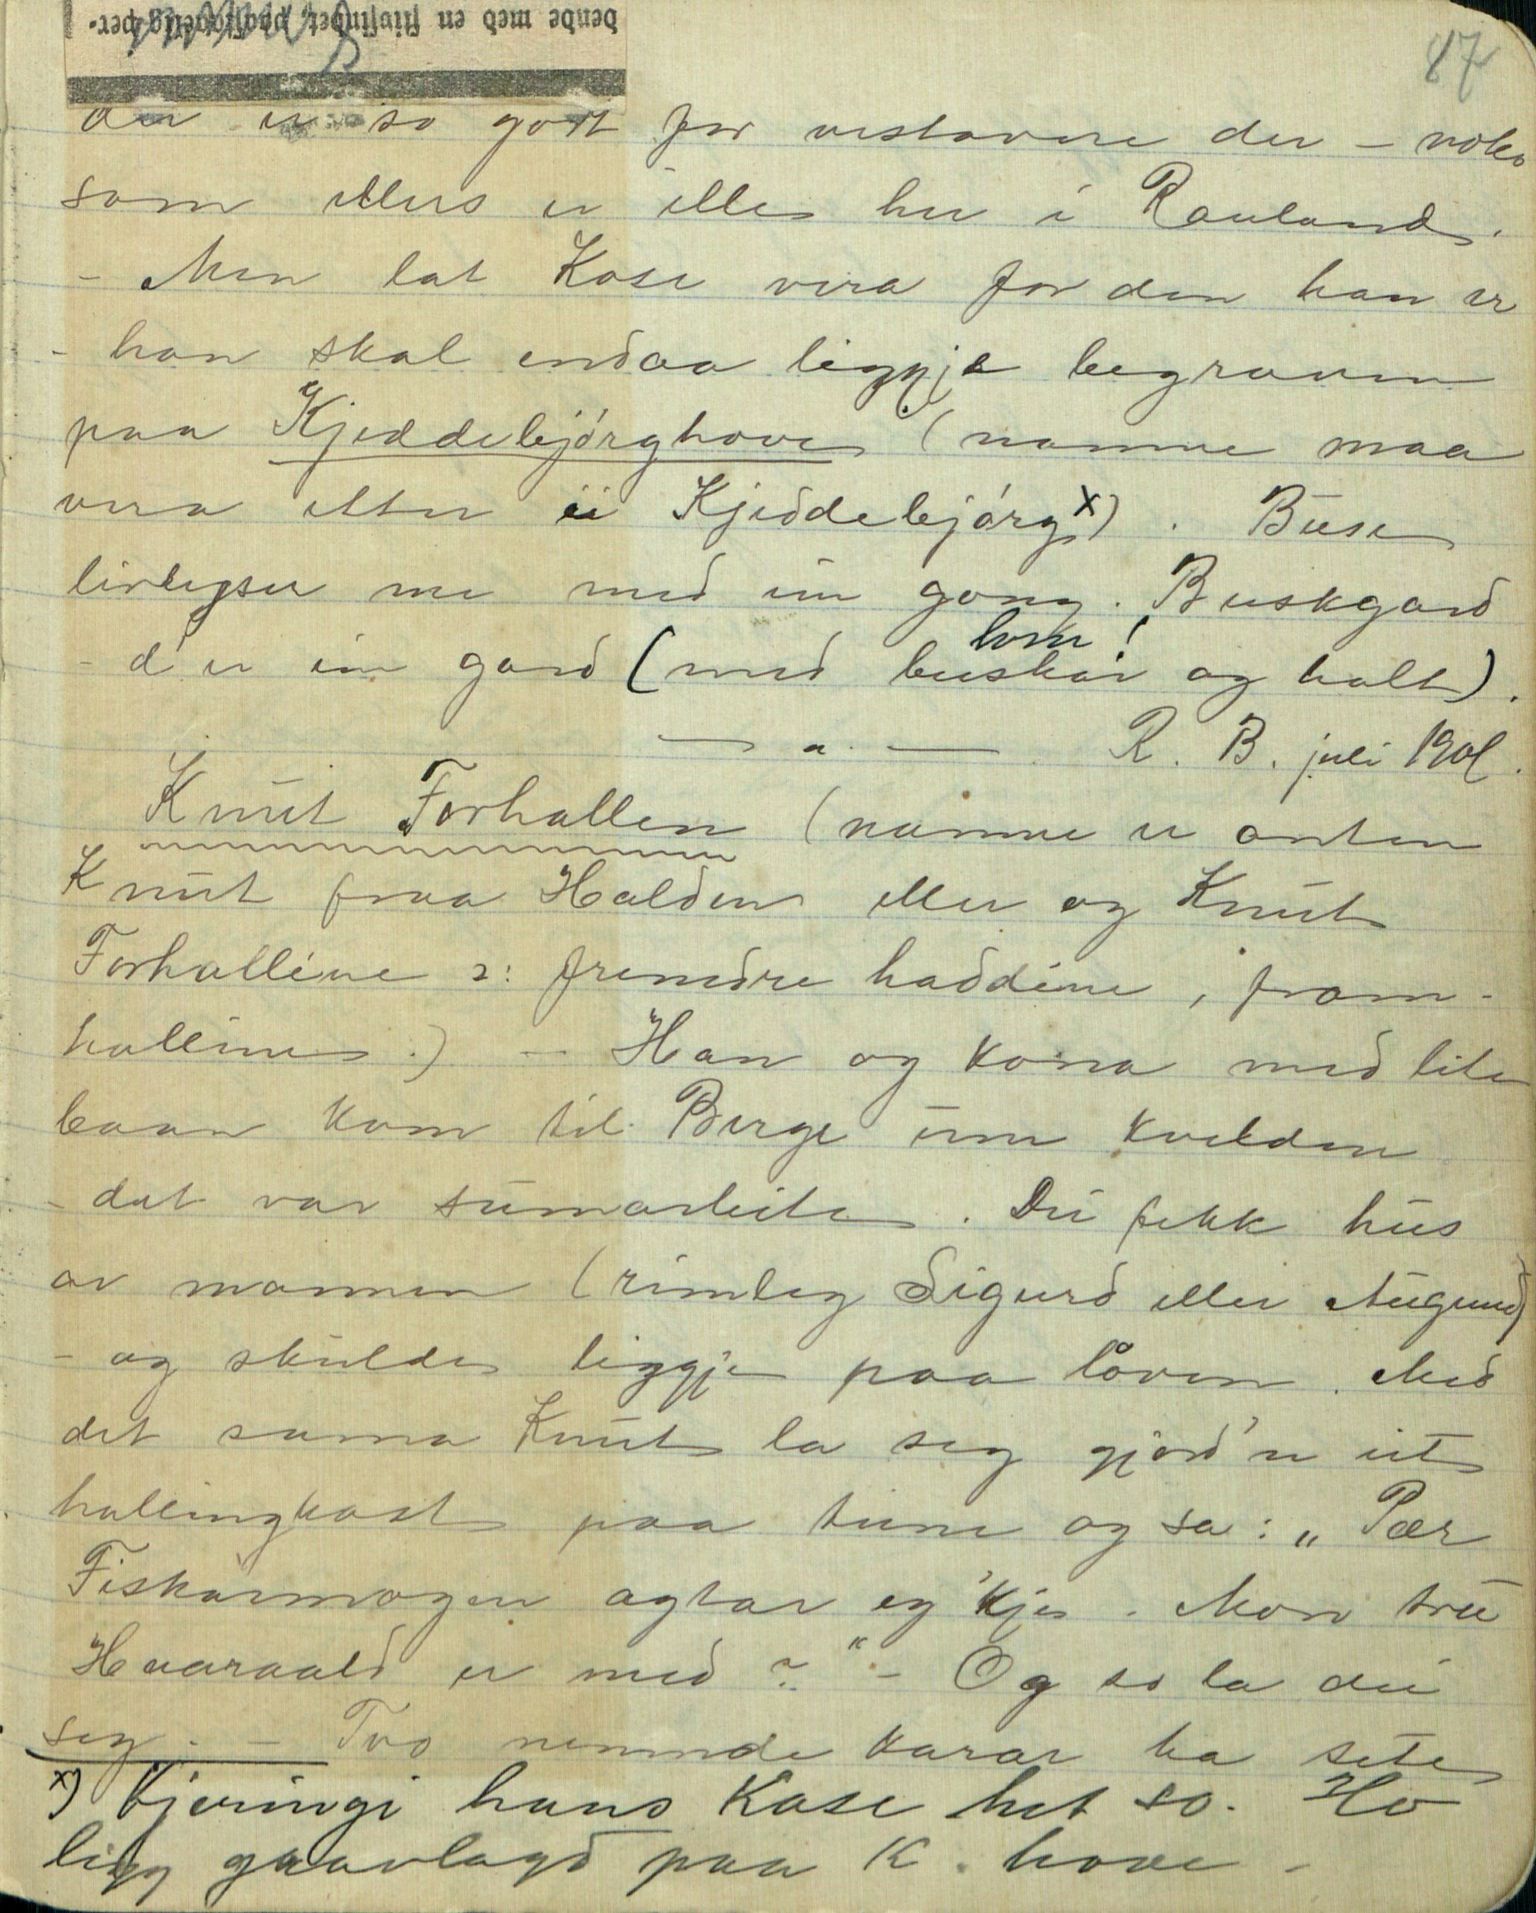 bende med en stivfindet, passiggelig per-
87
der er so godt for vestavere der – noko
som ellers er ille her i Rauland.
– Men lat Kose vera for den han er
– han skal endaa liggje begraven
paa Kjeddebjørghove (namne maa
vera etter ei Kjeddebjørg x) . Buse
me med ein gong. Buskgard
– d'er ein gard (med buskar og holt).
lom!
— " — R. B. juli 1901.
Knut Forhallen (namne er anten
Knut fraa Halden eller og Knut
Forhalline ɔ: fremdre haddine, fram-
halline.) – Han og kona med lite
baan kom til Berge um kvelden
– dat var sumarleite. Dei fekk hus
av mannen (rimleg Sigurd eller Augund)
– og skulde liggje paa låven. Med
det sama Knut la seg gjord'n eit
hallingkast paa tune og sa: „Pær
Fiskarmogen agtar eg 'kje. Mon tru
Hvaraald er med?" – Og so la dei
seg. – Tvo nemnde karar ha sete
x) Kjeringi hans Kose het so. Ho
ligg gravlagd paa K. hove –